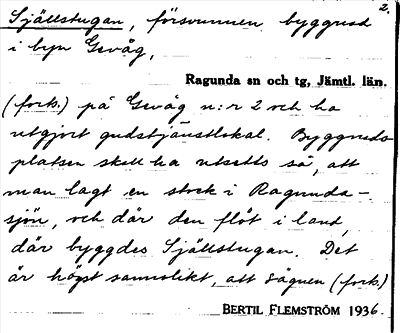 2.
Själlstugan, försvunnen byggnad
i byn Gevåg,
Ragunda sn och tg, Jämtl. län.
(forts.) på Gevåg n:r 2 och ha
utgjort gudstjänstlokal. Byggnads-
platsen skall ha utsetts så, att
man lagt en stock i Ragunda-
sjön, och där den flöt i land,
där byggdes Själlstugan. Det
är högst sannolikt, att sägnen (forts.)
BERTIL FLEMSTRÖM 1936.